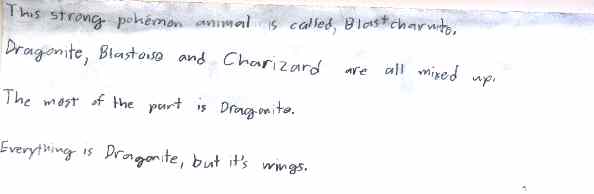 This strong pokémon animal is called, Blastcharnite.
Dragonite, Blastoise and Charizard are all mixed up.
The most of the part is Dragonite.
Everything is Dragonite, but it's wings.